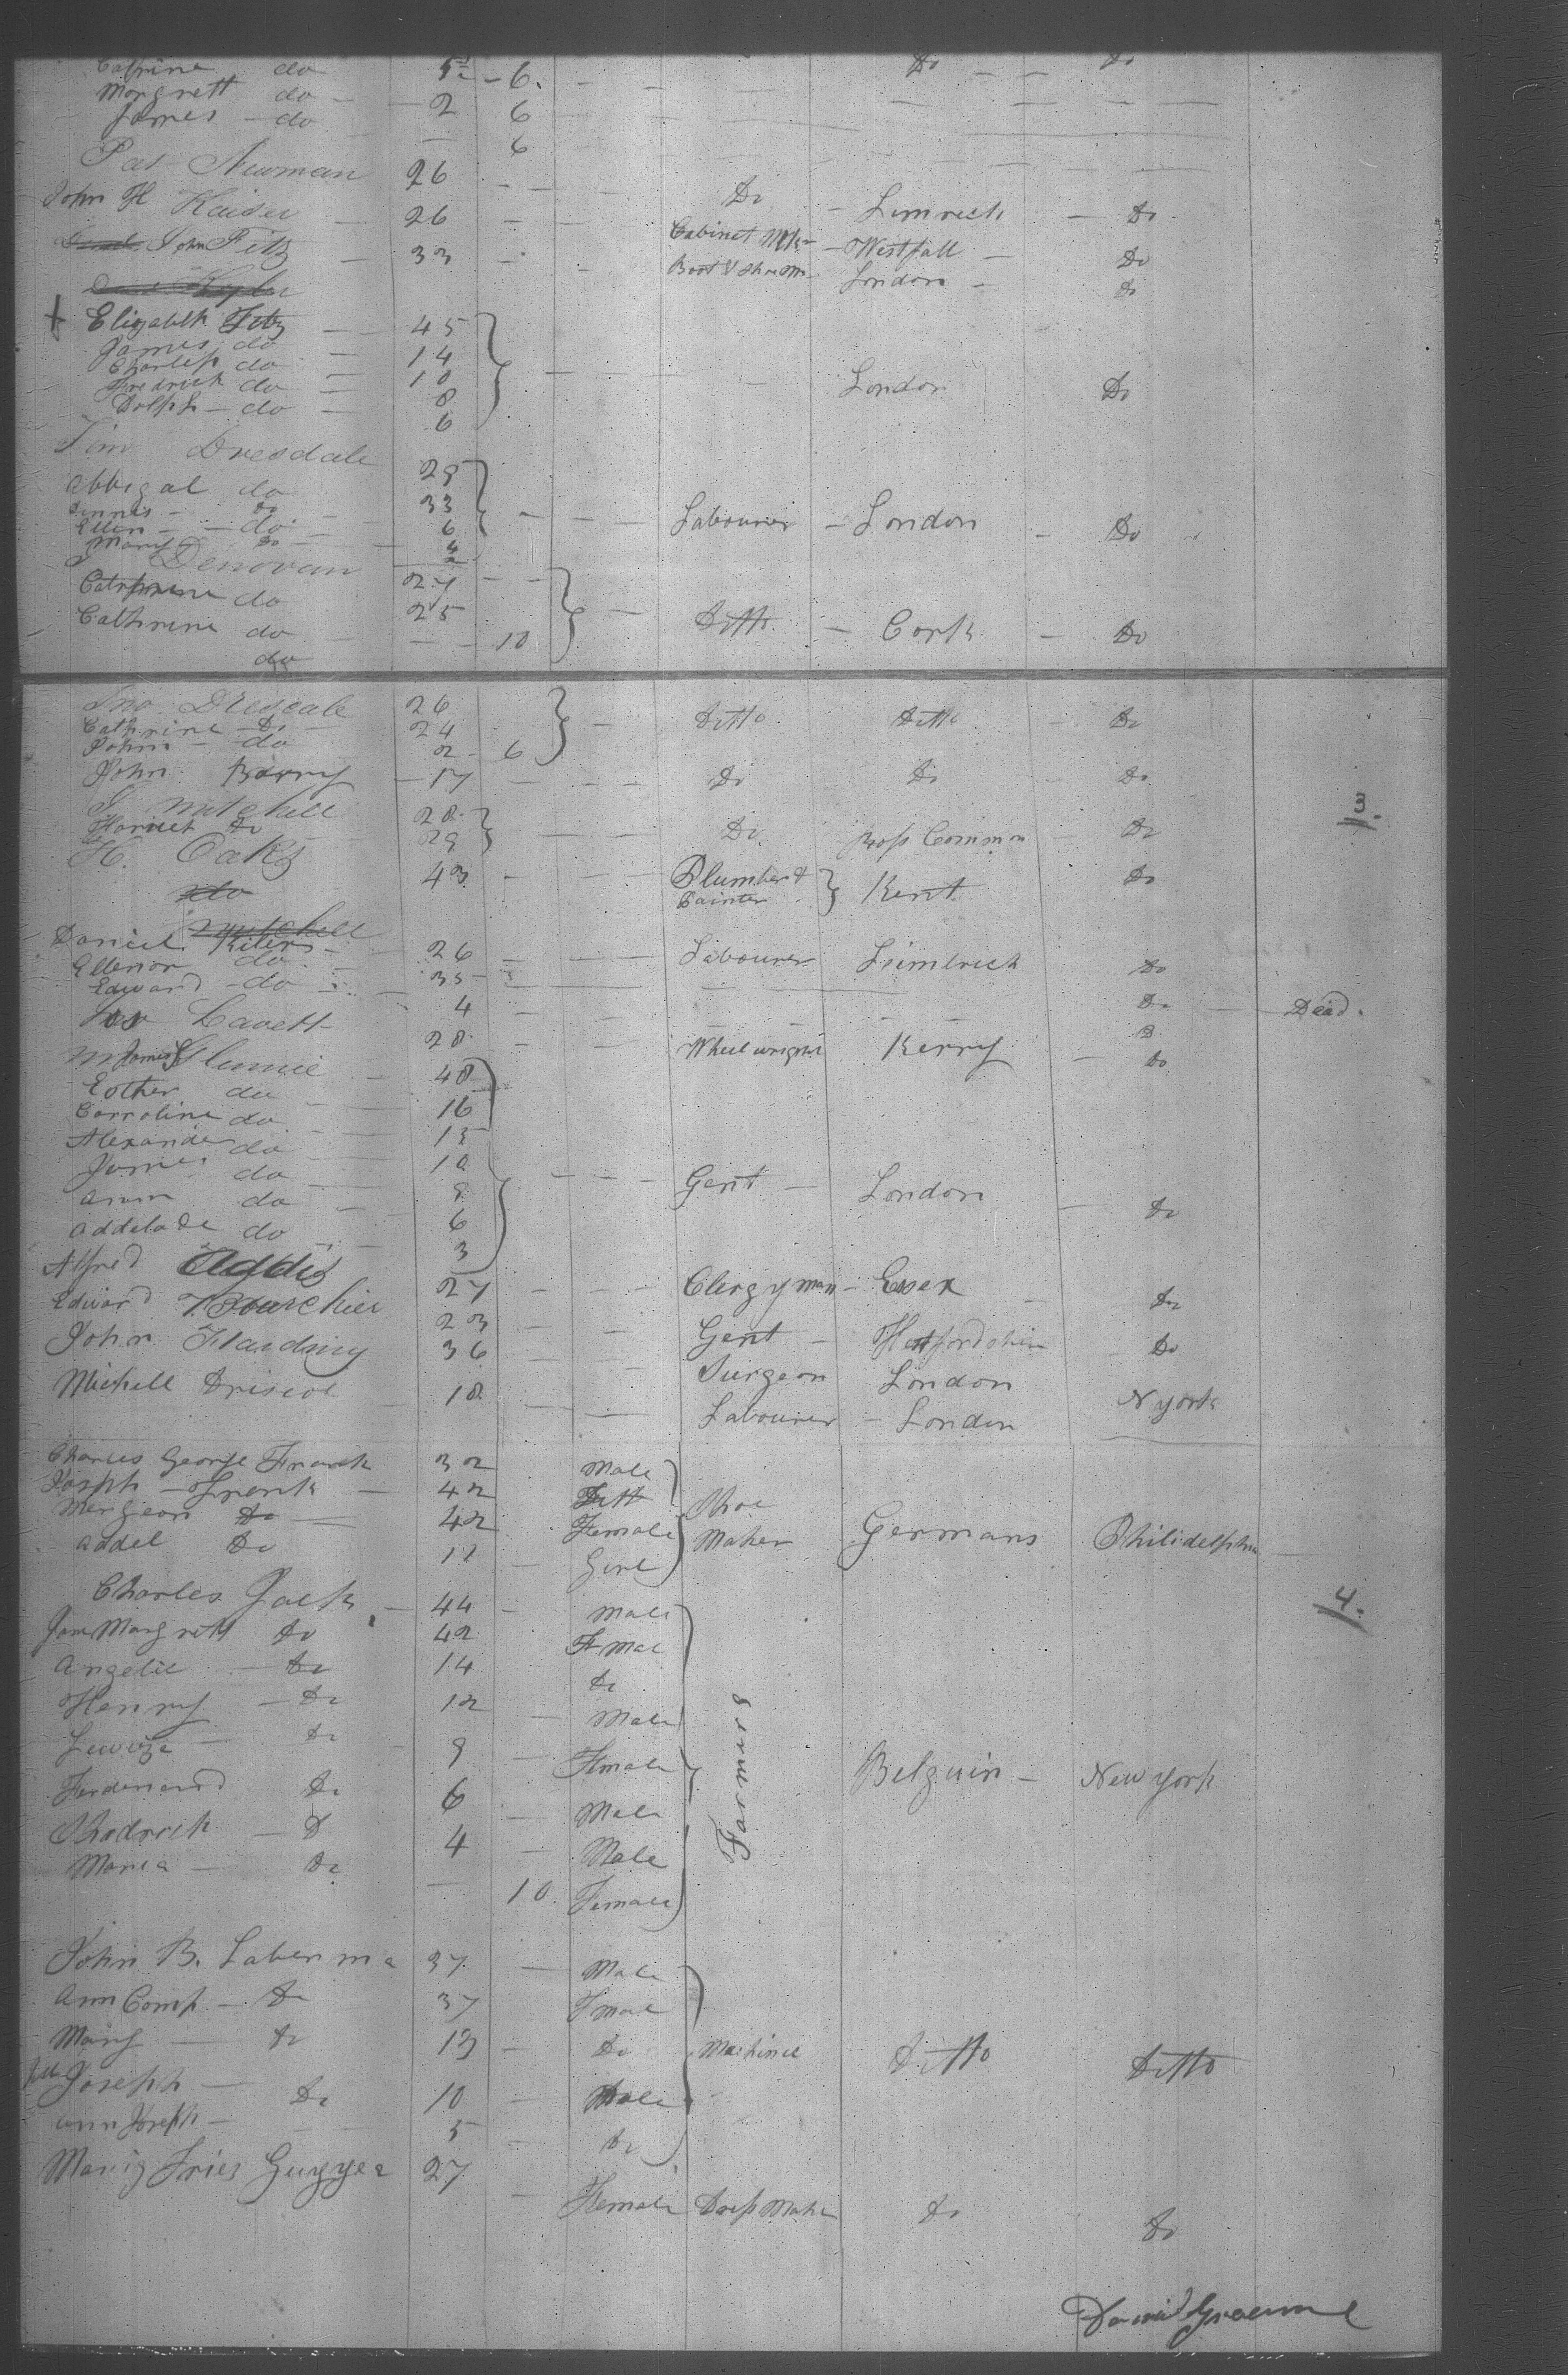 Cathrine do 5 - 6. Do Do
Morgrett do 2 6
James - do 6
Pat Newman 26 Do - Limrick - Do
John H Kaiser 26 Cabinet Mkr - Westfall Do
John Fitz 33 Boot & Shoe M - London Do
Elizabeth Fitz 45
James do 14
Charless do 10 London Do
Fredrick do 8
Dolph - do 6
Dresdale 29
Abbigal do 33
Dennis - Do 6 Labourer - London - Do
Ellen - do 4
Mary Do 2
Donovan 27
Cathrine do 25 Ditto - Cork - Do
Cathrine do 10
do
Jno Dresdale 26 Ditto Ditto Do
Cathrine Do 24
John - do 2 6
John Barry 17 Do Do Do
S Mitchell 28 Do Ross Common Do
Harriet Do 29
H. Oaks 43 Plumber & Painter Kent Do
do
Mitchell
Daniel Peters 26 Labourer Limbrick Do
Ellenor do 35 Do Dead.
Edward do 4 D
Lavett 28 Wheelwright Kerry Do
48
Esther do 16
Carroline do 15
Alexander do 10
James do 8 Gent London Do
Ann do 6
Addelade do 3
Alfred Addis 27 Clergyman - Essex Do
Edward Bourchier 23 Gent Hertfordshire Do
John Harding 36 Surgeon London
Michell Driscol 18 Labourer - London N york
3.
Charles George Frank 32 Male
Joseph - Frank 42 Ditt Shoe
Mergeon Do 42 Female Maker Germans Philidelphia
Addel Do 11 Girl
4.
Charles Jack 44 Male
Jane Margrett Do 42 Fmal
Angelic Do 14 Do
Henry - Do 12 Male
Do 8 Fmale Farmers Belguin - New york
Ferdenand Do 6 Male
Rhodrick - D 4 Male
Maria - Do 10 Female
John B. Laberma 37 Male
Ann Comp - Do 37 Fmal
Mary Do 13 Do Machinel Ditto Ditto
Joseph - Do 10 Male
Ann Joseph - 5 Do
Maria Fries Guggea 27 Female Dress Maker Do Do
David Graeme